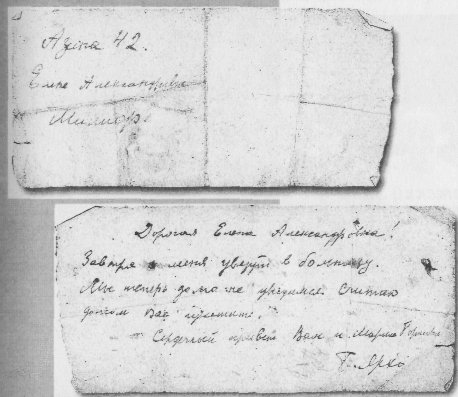 42.
Елене Александровне
Дорогая Елена Александровна!
Завтра меня увезут в больницу.
Мы теперь долго не увидимся. Считаю
долгом Вас
Сердечный привет Вам и Марии
Г. Ярхо